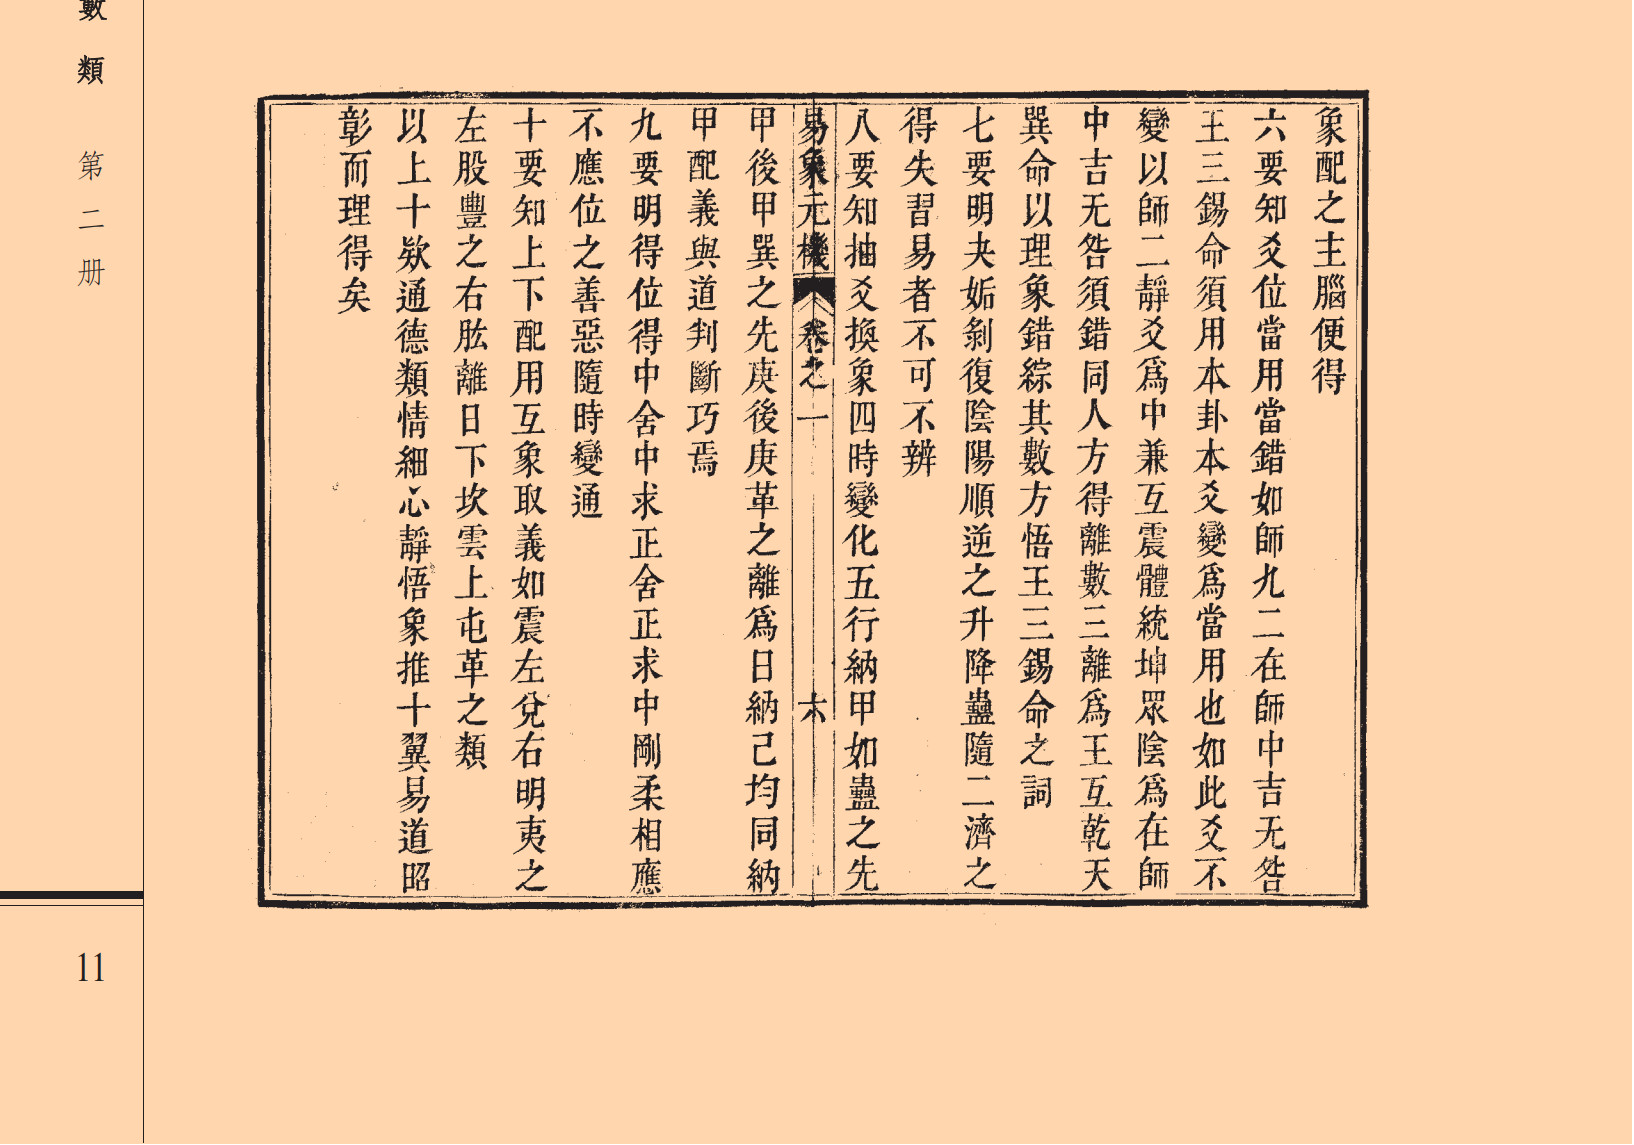 象配之主腦便得
六要知爻位當用當錯如師九二在師中吉无咎
王三錫命須用本卦本爻變爲當用也如此爻不
變以師二靜爻爲中兼互震體統坤眾陰爲在師
中吉无咎須錯同人方得離數三離爲王互乾天
巽命以理象錯綜其數方悟王三錫命之詞
七要明夬姤剝復陰陽順逆之升降蠱隨二濟之
得失習易者不可不辨
八要知抽爻換象四時變化五行納甲如蠱之先
易象元機
卷之一
六
甲後甲巽之先庚後庚革之離爲日納己均同納
甲配義與道判斷巧焉
九要明得位得中舍中求正舍正求中剛柔相應
不應位之善惡隨時變通
十要知上下配用互象取義如震左兌右明夷之
左股豐之右肱離日下坎雲上屯革之類
以上十欵通德類情細心靜悟象推十翼易道昭
彰而理得矣
數類
第二册
11